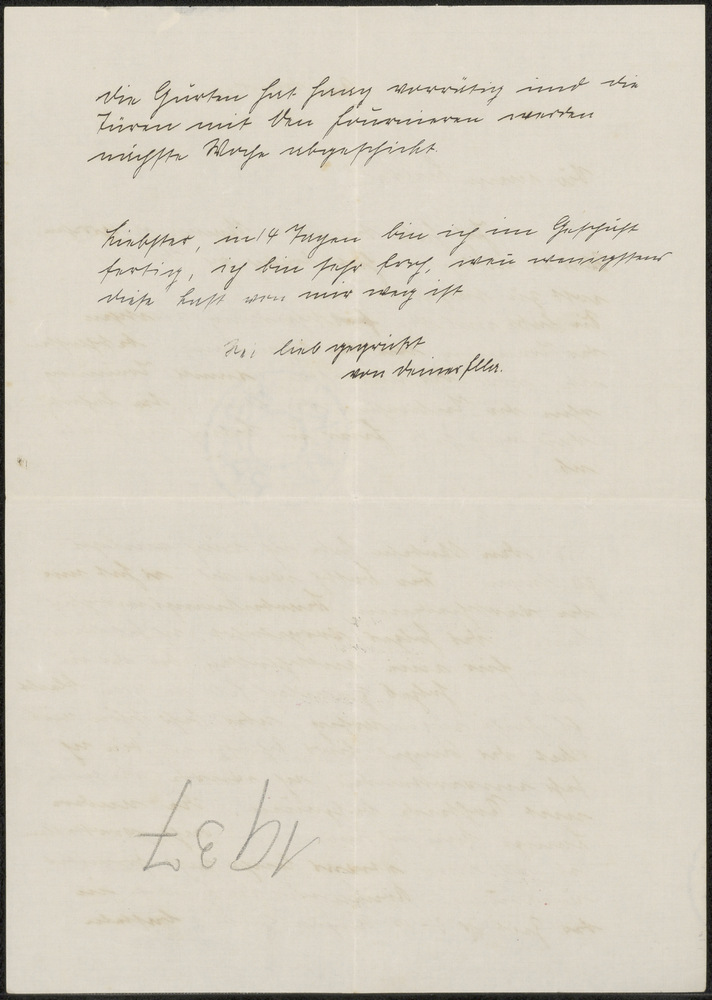 die Gurten hat Haag vorrätig und die
Türen mit den Fournieren werden
nächste Woche abgeschickt.
Liebster, in 14 Tagen bin ich im Geschäft
fertig, ich bin sehr froh, weil wenigstens
diese Last von mir weg ist
Sei lieb gegrüßt
von deiner Ella.
1937